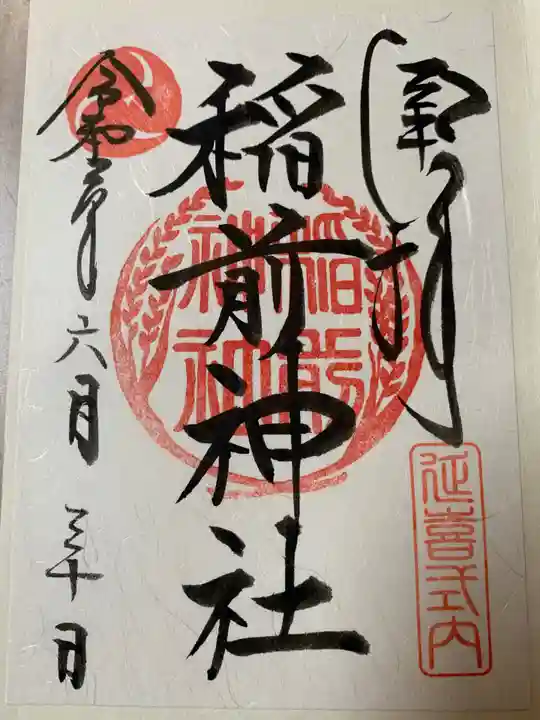 拝
延喜式内
稲前神社
稲前
神社
令和年六月三十日